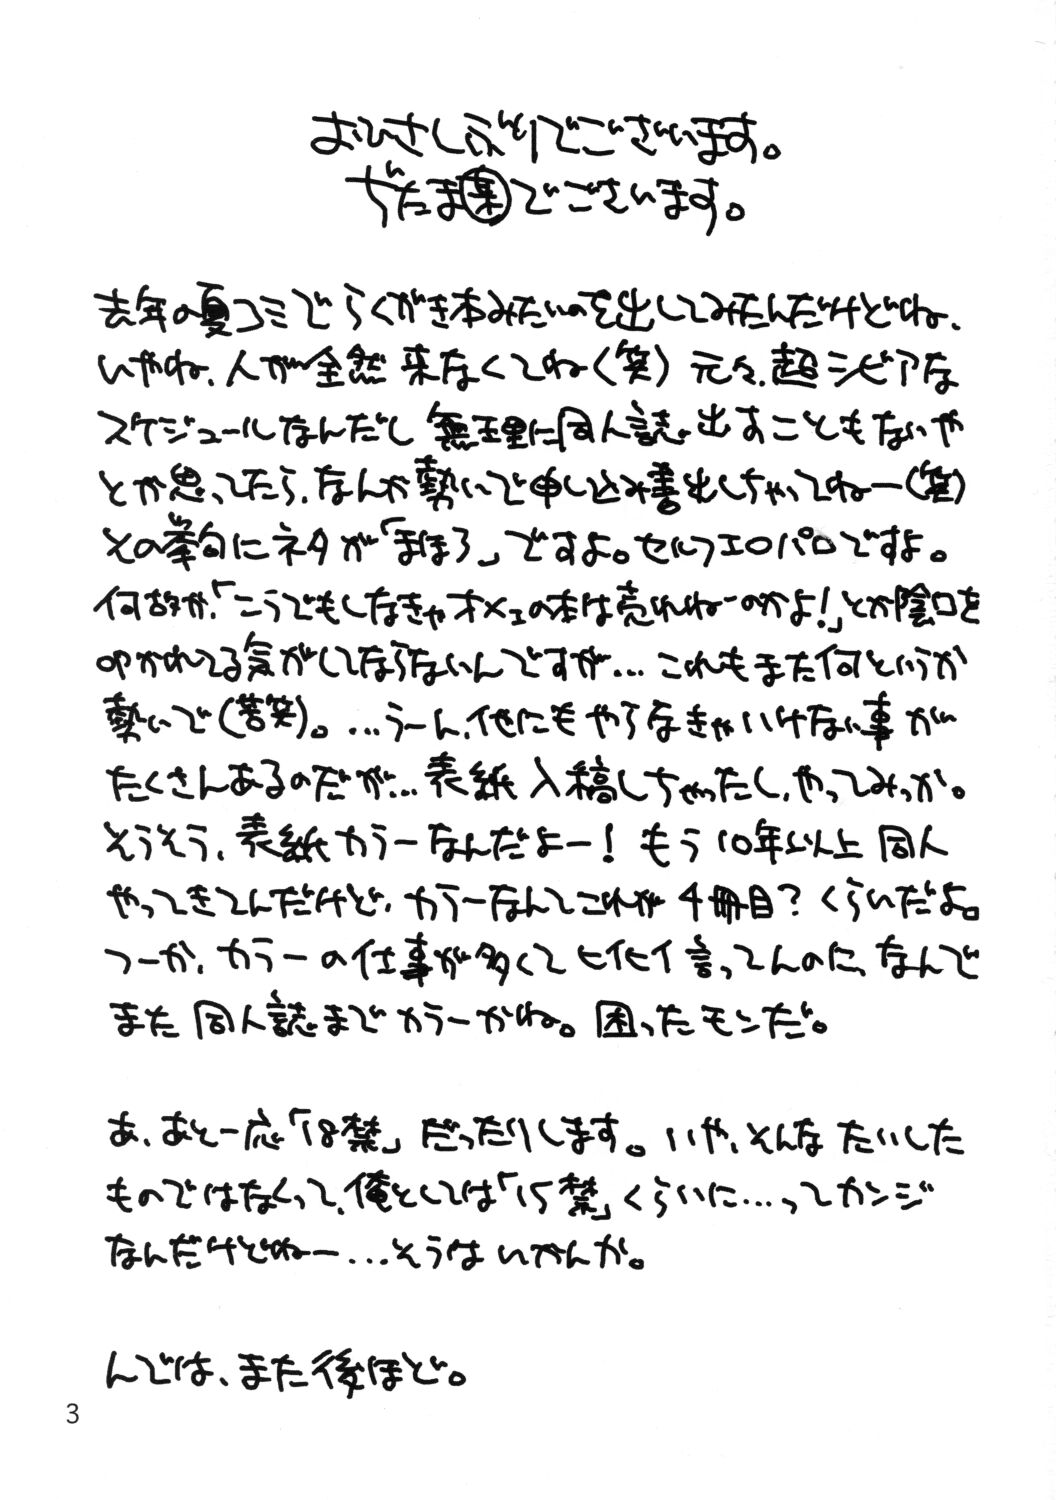 おひさしぶりでございます。
ぢたま㊍でございます。
去年の夏コミでらくがき本みたいのを出してみたんだけどね、
いやね、人が全然来なくてね(笑) 元々、超シビアな
スケジュールなんだし 無理に同人誌出すこともないや
とか思ってたら、なんか勢いで申し込み書出しちゃってねー(笑)
その挙句にネタが「まほろ」ですよ。セルフエロパロですよ。
何故か、「こうでもしなきゃオメェの本は売れねーのかよ!」とか陰口を
叩かれてる気がしてならないんですが…これもまた何というか
勢いで(苦笑)。…うーん、他にもやらなきゃいけない事が
たくさんあるのだが…表紙入稿しちゃったし、やってみっか。
そうそう、表紙カラーなんだよー! もう10年以上 同人
やってきてんだけど、カラーなんてこれが4冊目?くらいだよ。
つーか、カラーの仕事が多くてヒイヒイ言ってんのに、なんで
また同人誌までカラーかね。困ったモンだ。
あ、あと一応「18禁」だったりします。いや、そんなたいした
ものではなくって、俺としては「15禁」くらいに…ってカンジ
なんだけどねー…そうはいかんか。
んでは、また後ほど。
3